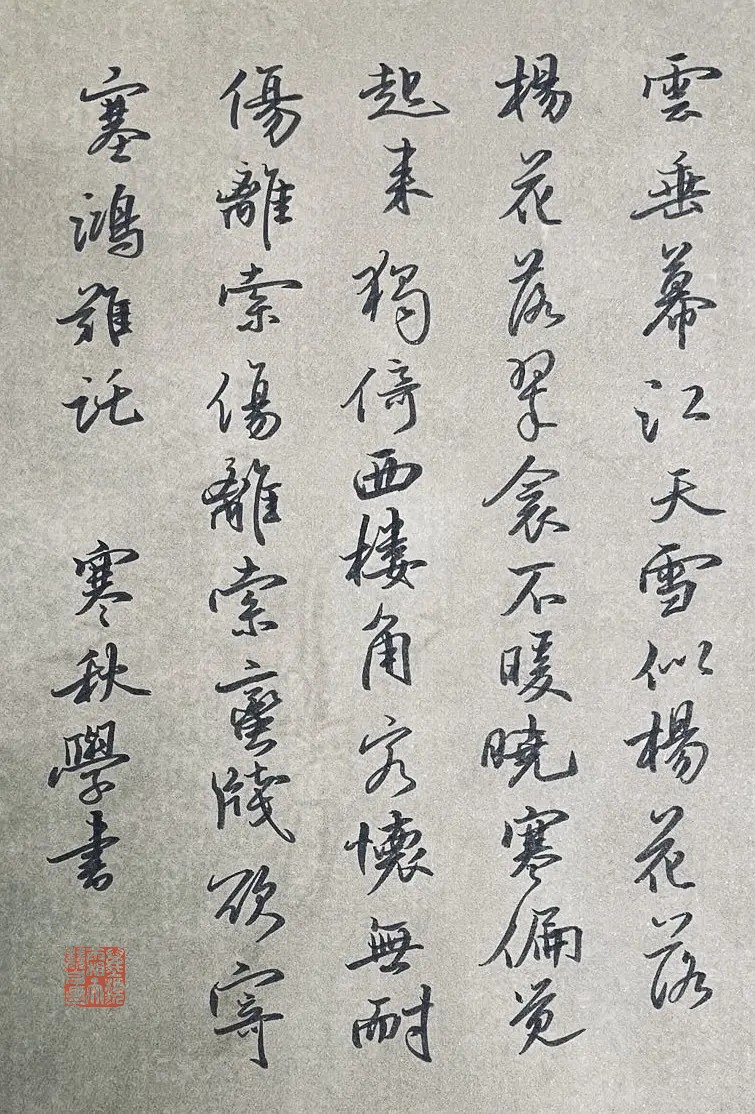 雲垂幕江天雪似楊花落
楊花落翠衾不暖曉寒偏覚
起来獨倚西樓角客懷無耐
傷離索傷離索蠻牋欲寄
塞鴻難託 寒秋學书